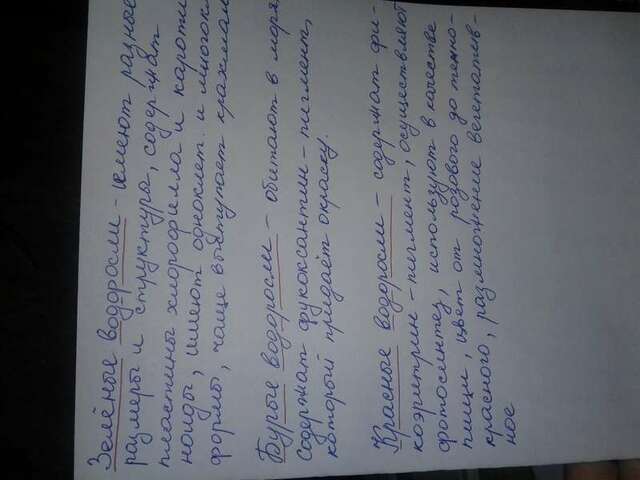 Зелёные водоросли - имеют разные
размеры и структура, содержат
пластины хлорофилла и кароти-
ноиды, имеют одноклет. и многокл
формы, чаще выступает крахмал
Бурые водоросли - обитают в моря
содержат фукоксантин - пигмент,
который придаёт окраску.
Красные водоросли - содержат фи-
коэритрин - пегмент, осуществляют
фотосинтез, используют в качестве
пищи, цвет от розового до темно-
красного, размножение вегетатив-
ное